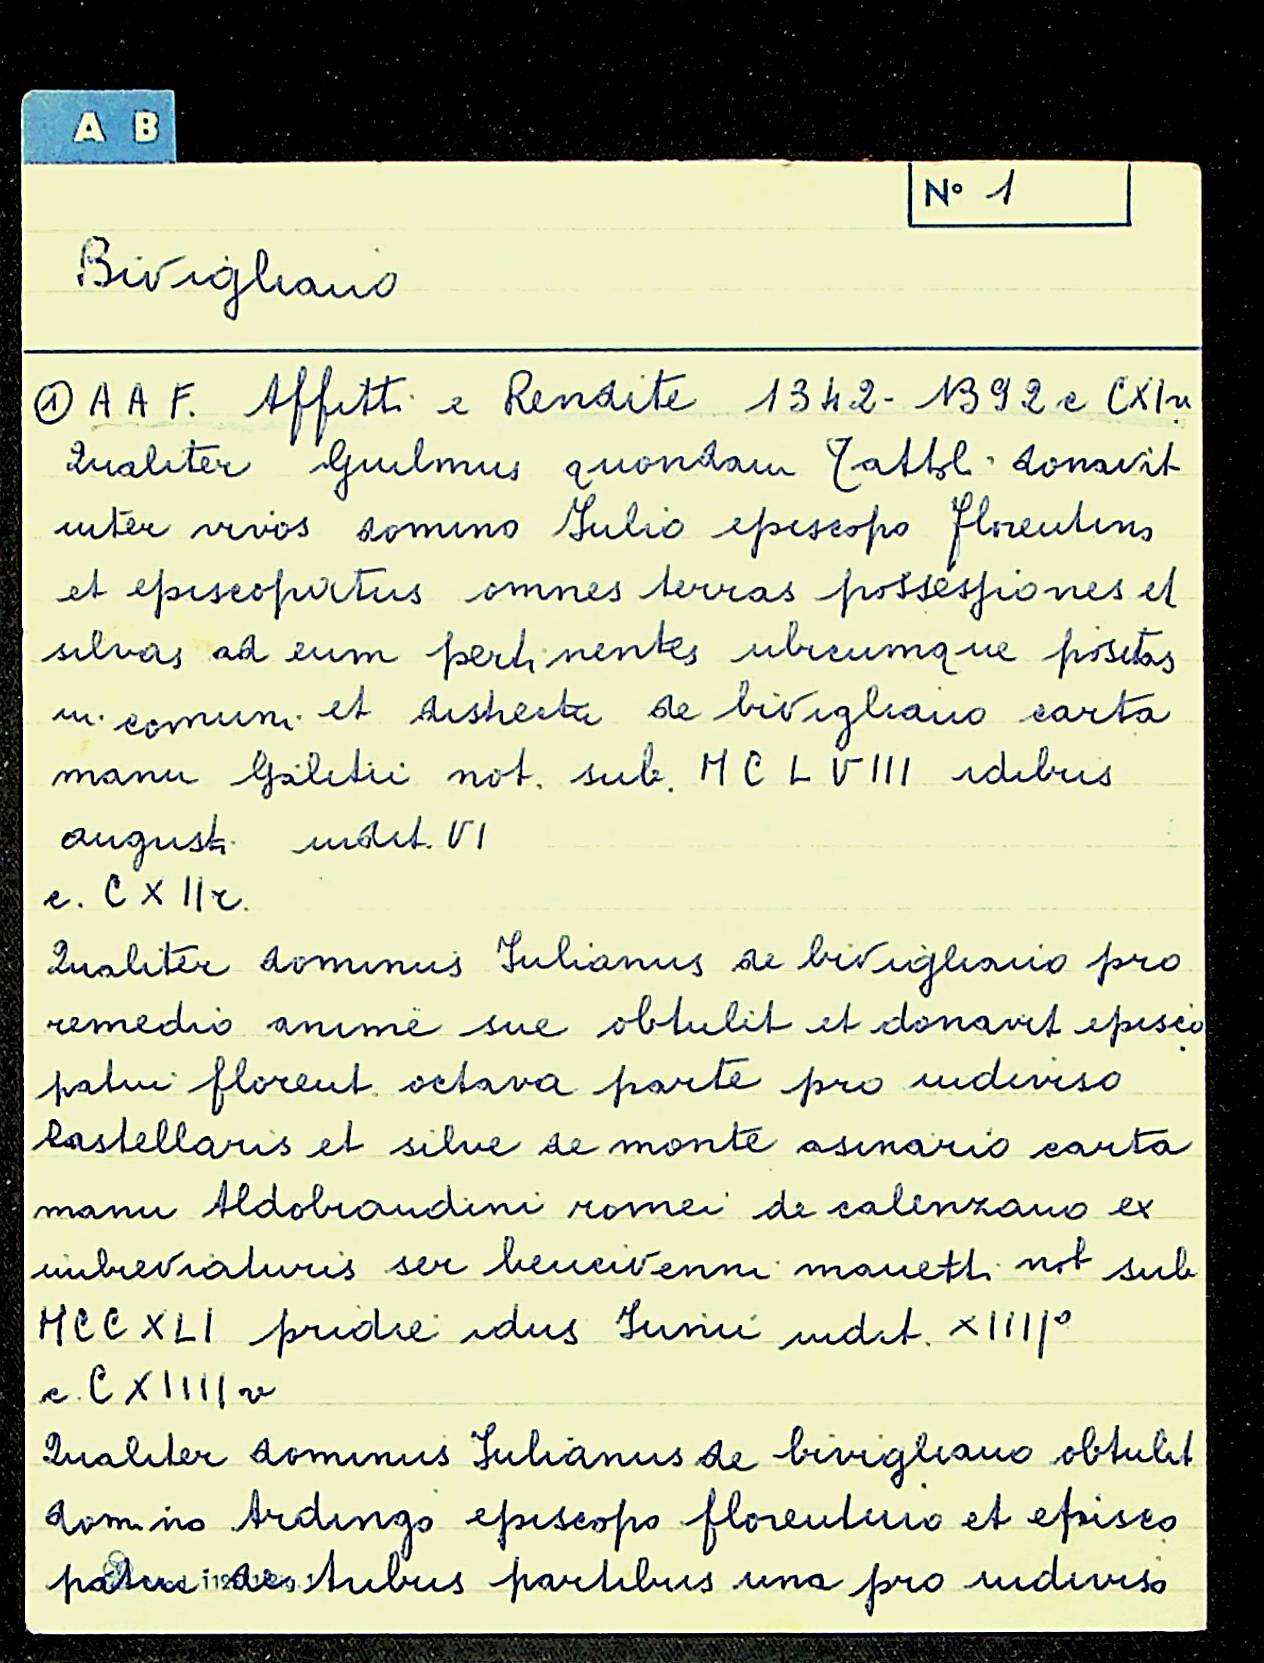 A B
N° 1
Bivigliano
① A A F. Affitti e Rendite 1342-1392 c CXIv
Qualiter Guilmus quondam donavit
inter vivos domino Julio episcopo florentino
et episcopatus omnes terras possessiones et
silvas ad eum pertinentes ubicumque positas
in comuni et districtu de bivigliano carta
manu not. sub. MCLVIII idibus
augusti indit. VI
c. CXIIr.
Qualiter dominus Julianus de bivigliano pro
remedio anime sue obtulit et donavit episco
patui florent. octava parte pro indiviso
Castellaris et silve de monte asinario carta
manu Aldobrandini romei de calenzano ex
imbreviaturis ser bencivenni manetti not sub
MCCXLI pridie idus Junii indit. XIIII°
c. CXIIIIv
Qualiter dominus Julianus de bivigliano obtulit
domino Ardingo episcopo florentino et episco
partibus una pro indiviso